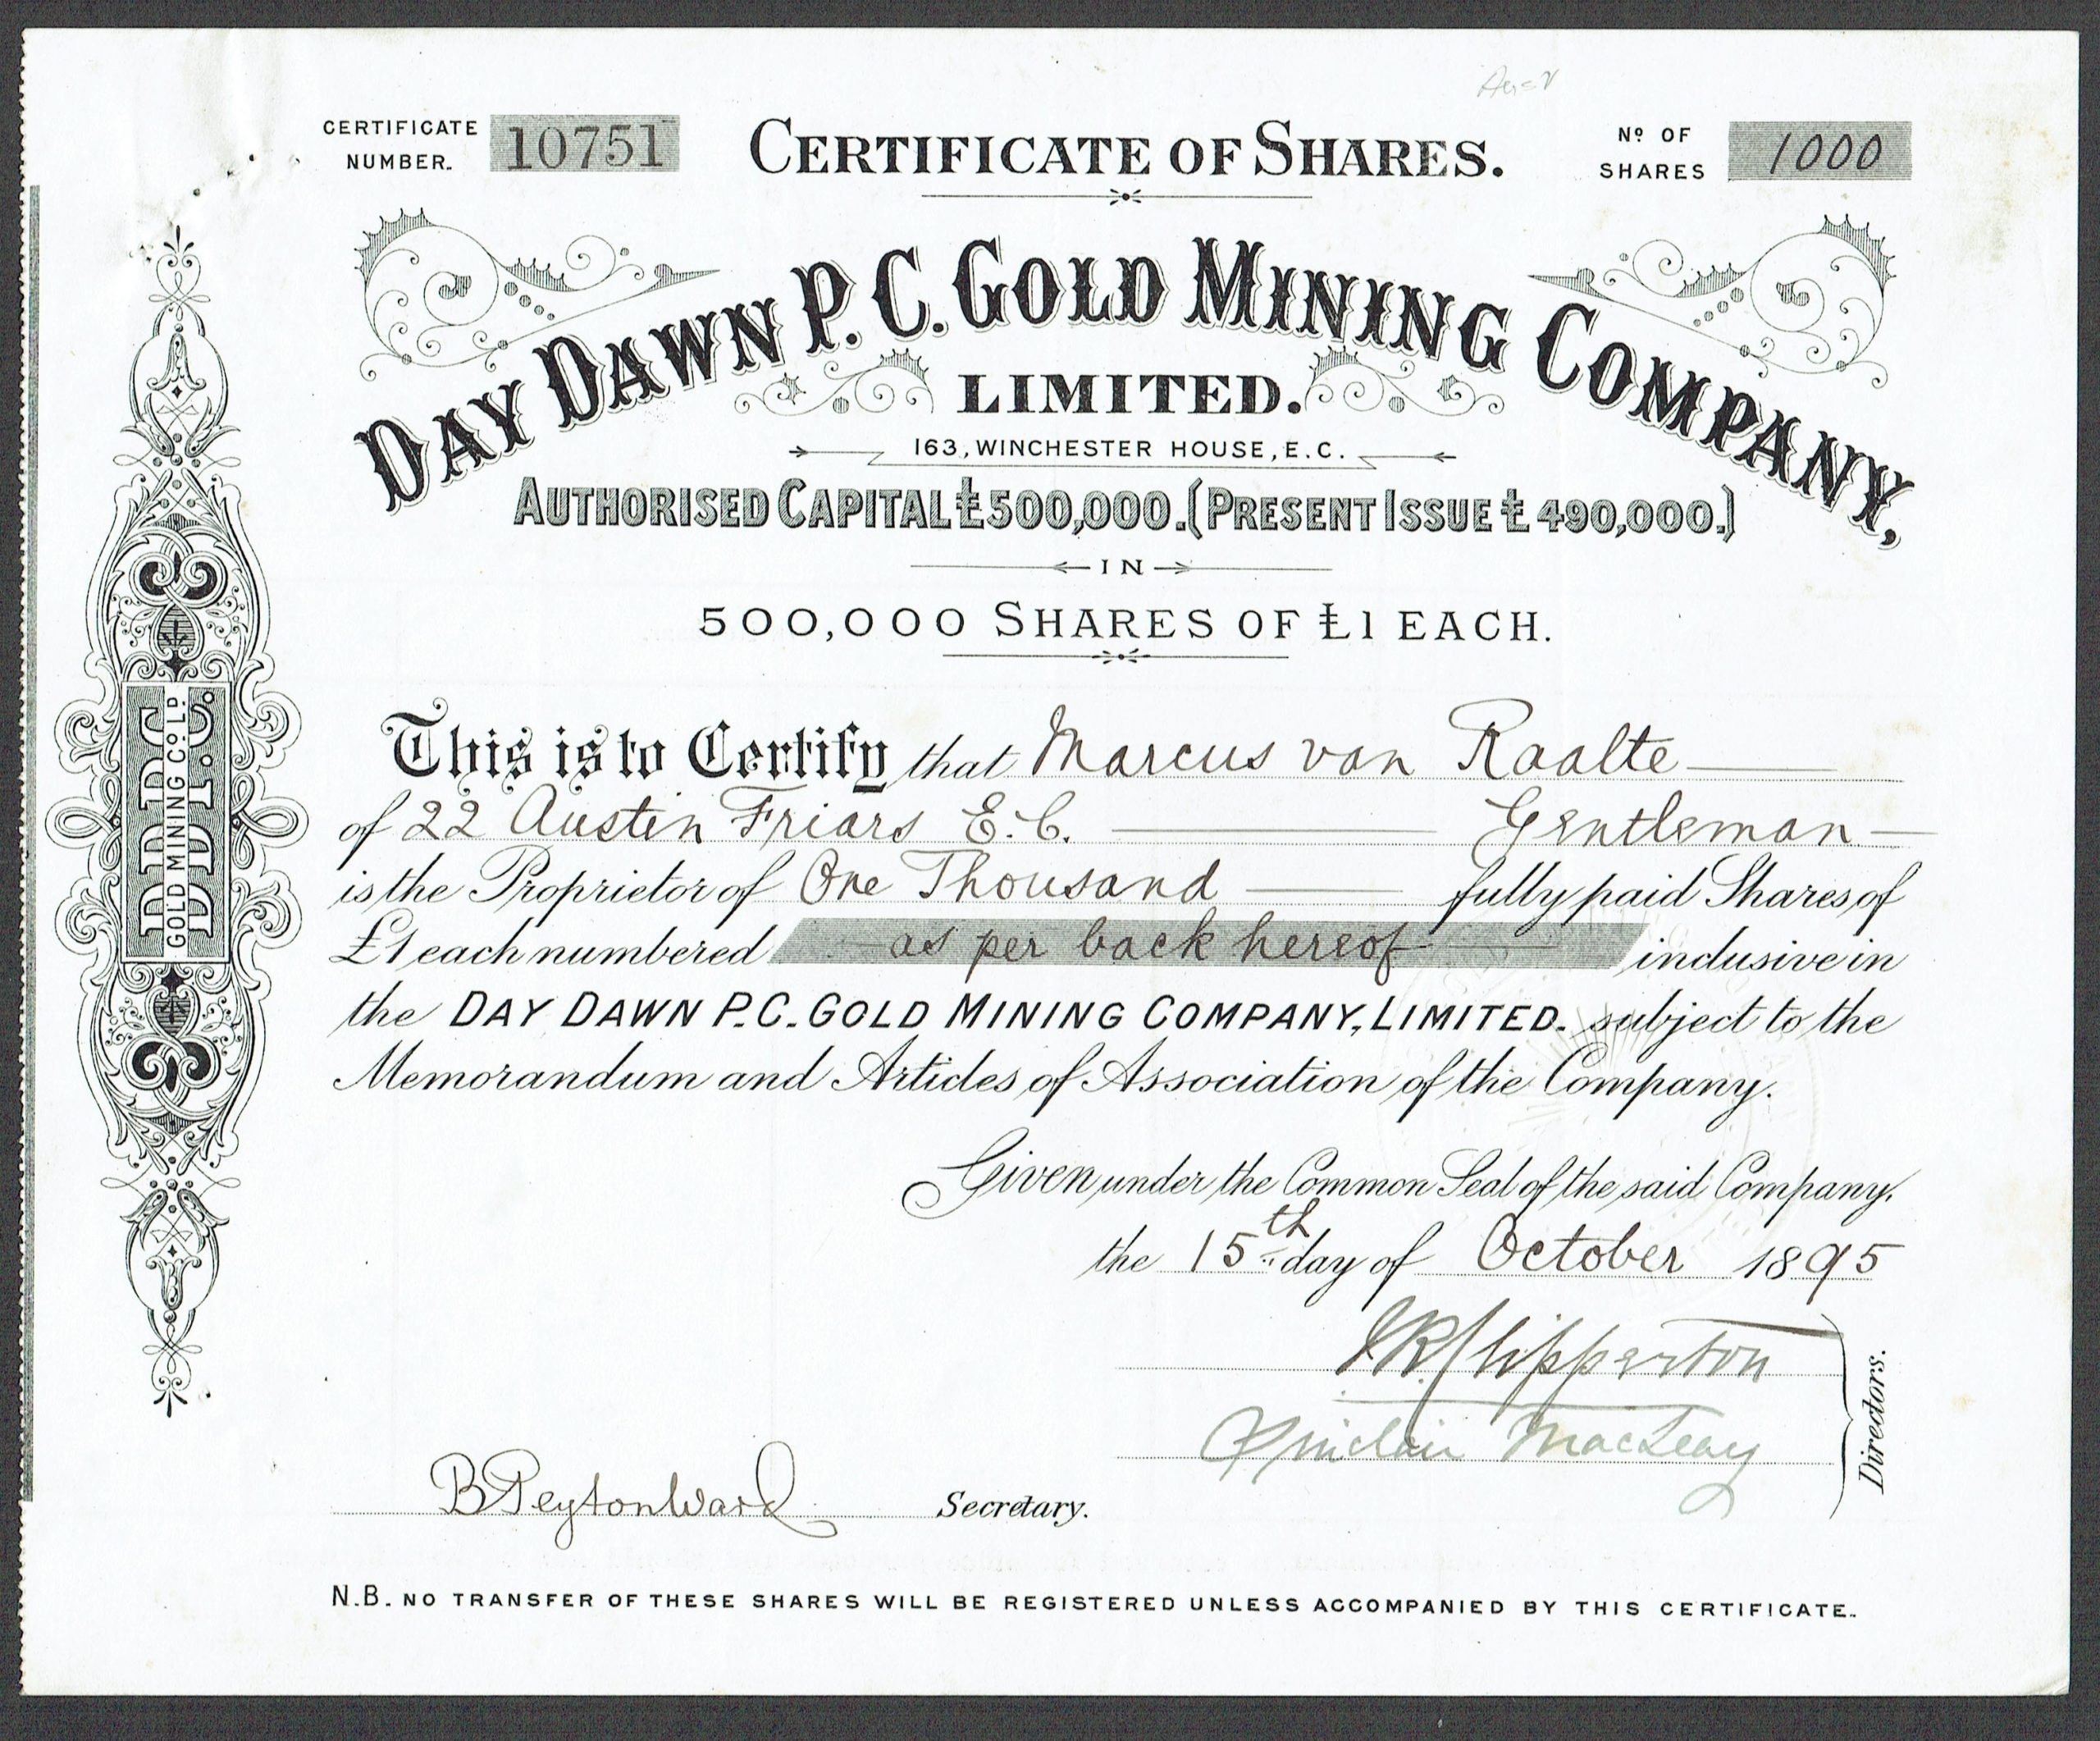 CERTIFICATE NUMBER. 10751
CERTIFICATE OF SHARES.
Nº OF SHARES 1000
DAY DAWN P. C. GOLD MINING COMPANY,
LIMITED.
163, WINCHESTER HOUSE, E.C.
AUTHORISED CAPITAL £500,000. (PRESENT ISSUE £490,000.)
IN
500,000 SHARES OF £1 EACH.
This is to Certify that Marcus van Raalte
of 22 Austin Friars E.C. Gentleman
is the Proprietor of One Thousand fully paid Shares of
£1 each numbered as per back hereof inclusive in
the DAY DAWN P.C. GOLD MINING COMPANY, LIMITED. subject to the
Memorandum and Articles of Association of the Company.
Given under the Common Seal of the said Company,
the 15th day of October 1895
Sinclair Macleay
Directors.
B Peyton Ward Secretary.
N.B. NO TRANSFER OF THESE SHARES WILL BE REGISTERED UNLESS ACCOMPANIED BY THIS CERTIFICATE.
DD.P.C.
GOLD MINING CO LD.